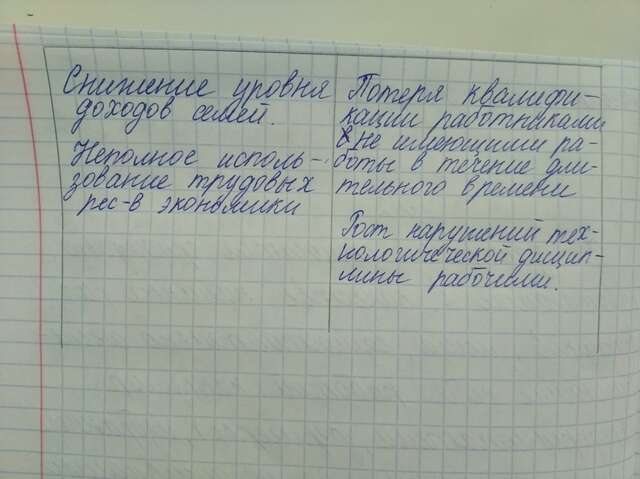 Снижение уровня
доходов семей.
Неполное исполь-
зование трудовых
рес-в экономики
Потеря квалифи-
кации работниками
не имеющими ра-
боты в течение дли-
тельного времени
Рост нарушений тех-
нологической дисцип-
лины рабочими.